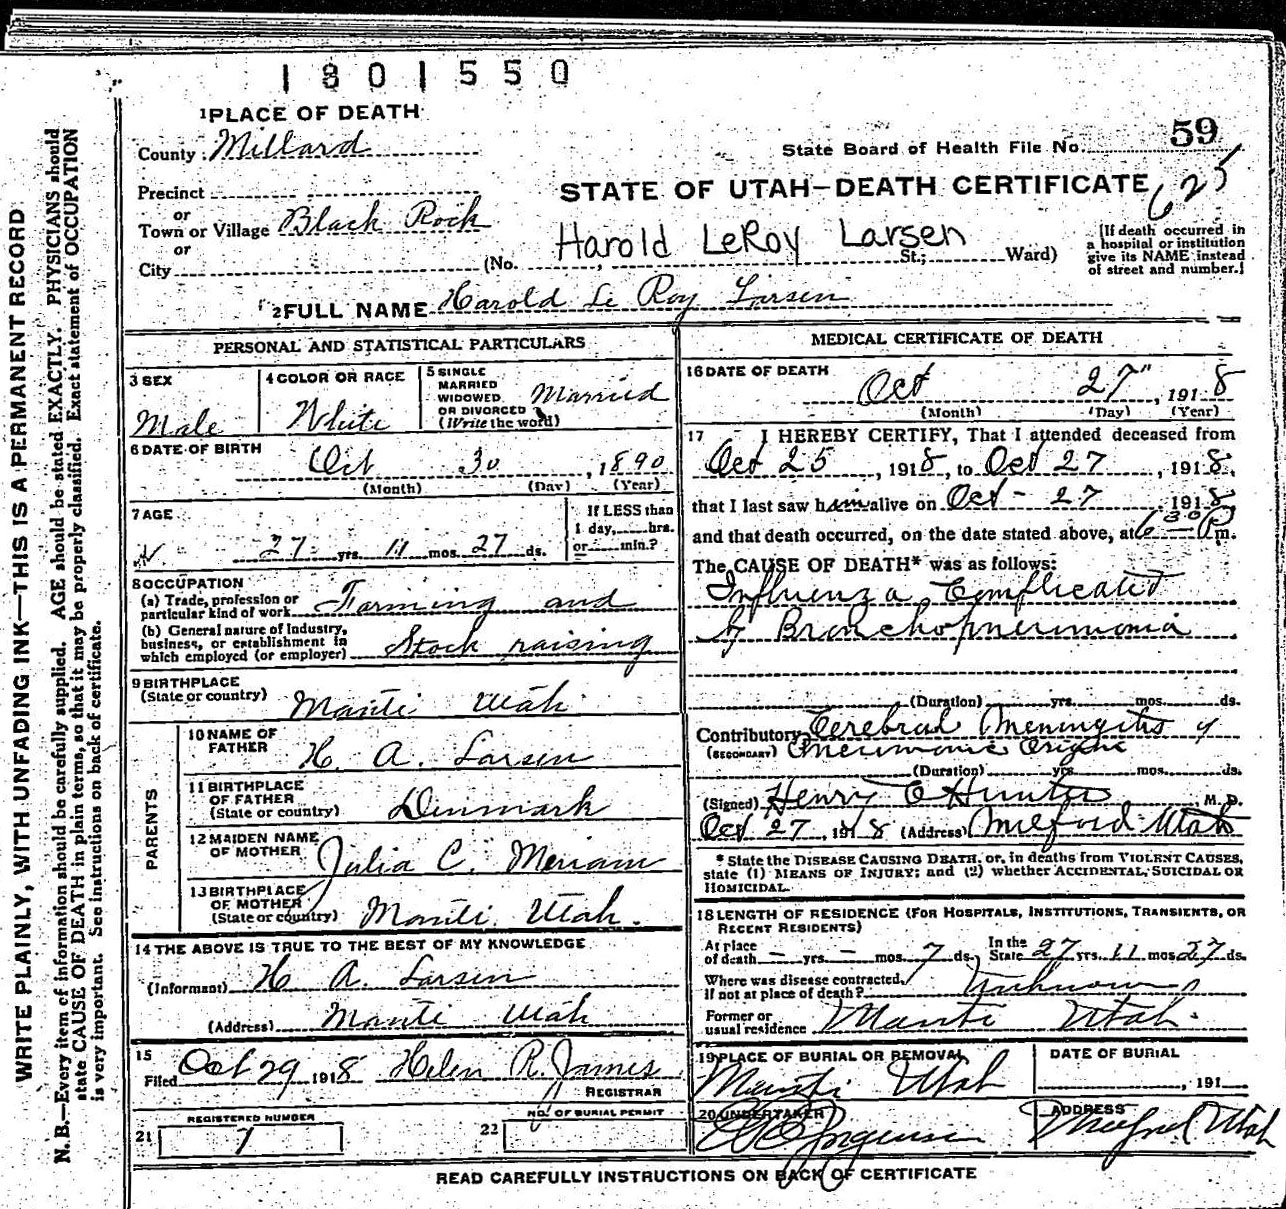 1801550
1 PLACE OF DEATH
County Millard
State Board of Health File No. 59
Precinct
STATE OF UTAH—DEATH CERTIFICATE 625
or
Town or Village Black Rock
or
Harold LeRoy Larsen
City (No. St.; Ward)
[If death occurred in
a hospital or institution
give its NAME instead
of street and number.]
2 FULL NAME Harold Le Roy Larsen
PERSONAL AND STATISTICAL PARTICULARS
3 SEX
Male
4 COLOR OR RACE
White
5 SINGLE
MARRIED
WIDOWED
OR DIVORCED
(Write the word)
Married
6 DATE OF BIRTH
Oct 30, 1890
(Month) (Day) (Year)
7 AGE
27 yrs. 11 mos. 27 ds.
If LESS than
1 day, hrs.
or min.?
8 OCCUPATION
(a) Trade, profession or
particular kind of work Farming and
(b) General nature of industry,
business, or establishment in
which employed (or employer) Stock raising
9 BIRTHPLACE
(State or country) Manti Utah
PARENTS
10 NAME OF
FATHER H. A. Larsen
11 BIRTHPLACE
OF FATHER
(State or country) Denmark
12 MAIDEN NAME
OF MOTHER Julia C. Meriam
13 BIRTHPLACE
OF MOTHER
(State or country) Manti Utah.
14 THE ABOVE IS TRUE TO THE BEST OF MY KNOWLEDGE
(Informant) H A. Larsen
(Address) Manti Utah
15
Filed Oct 29 1918 Helen R. James
REGISTRAR
REGISTERED NUMBER
21 7
NO. OF BURIAL PERMIT
22
MEDICAL CERTIFICATE OF DEATH
16 DATE OF DEATH
Oct 27", 1918
(Month) (Day) (Year)
17 I HEREBY CERTIFY, That I attended deceased from
Oct 25, 1918, to Oct 27, 1918,
that I last saw him alive on Oct - 27 1918,
and that death occurred, on the date stated above, at 6 30 P m.
The CAUSE OF DEATH* was as follows:
Influenza Complicated
by Bronchopneumonia
(Duration) yrs. mos. ds.
Contributory Cerebral Meningitis of
(SECONDARY) Pneumonic Origin
(Duration) yrs. mos. ds.
(Signed) Henry C Hunter M. D.
Oct 27, 1918 (Address) Milford Utah
* State the DISEASE CAUSING DEATH, or, in deaths from VIOLENT CAUSES,
state (1) MEANS OF INJURY; and (2) whether ACCIDENTAL, SUICIDAL OR
HOMICIDAL.
18 LENGTH OF RESIDENCE (FOR HOSPITALS, INSTITUTIONS, TRANSIENTS, OR
RECENT RESIDENTS)
At place
of death - yrs. - mos. 7 ds.
In the
State 27 yrs. 11 mos. 27 ds.
Where was disease contracted,
if not at place of death? Unknown
Former or
usual residence Manti Utah.
19 PLACE OF BURIAL OR REMOVAL
Manti Utah
DATE OF BURIAL
, 191
20 UNDERTAKER
ADDRESS
Milford Utah
READ CAREFULLY INSTRUCTIONS ON BACK OF CERTIFICATE
WRITE PLAINLY, WITH UNFADING INK—THIS IS A PERMANENT RECORD
N. B.—Every item of information should be carefully supplied. AGE should be stated EXACTLY. PHYSICIANS should
state CAUSE OF DEATH in plain terms, so that it may be properly classified. Exact statement of OCCUPATION
is very important. See instructions on back of certificate.